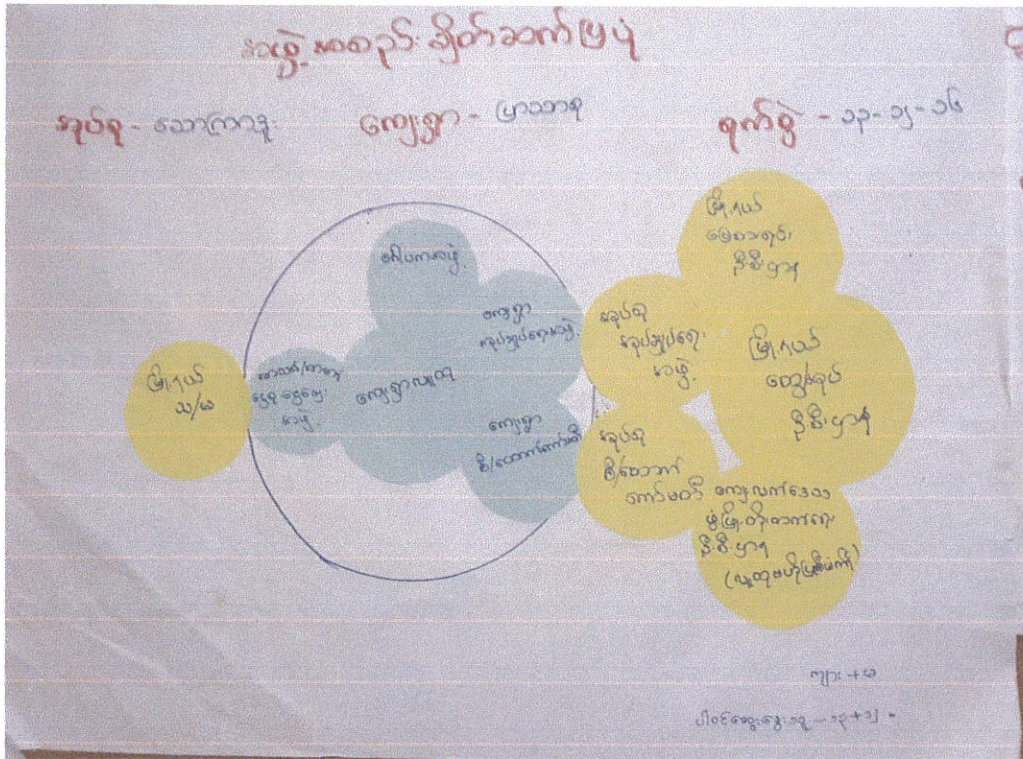 အဖွဲ့အစည်းချိတ်ဆက်ပြပုံ
အုပ်စု - သောကြာဒူး
ကျေးရွာ - ပြာသာစု
ရက်စွဲ - ၁၃-၁၂-၁၆
မြို့နယ်
သ/မ
အဖွဲ့
ကျေးရွာလူထု
ကျေးရွာ
အုပ်ချုပ်ရေးအဖွဲ့
ကျေးရွာ
စီ/ထောက်ကော်မတီ
အုပ်စု
အုပ်ချုပ်ရေး
အဖွဲ့
အုပ်စု
စီ/ထောက်
ကော်မတီ
မြို့နယ်
မြေစာရင်း
ဦးစီးဌာန
မြို့နယ်
ထွေ/အုပ်
ဦးစီးဌာန
ကျေးလက်ဒေသ
ဖွံ့ဖြိုးတိုးတက်ရေး
ဦးစီးဌာန
(လူထုဗဟိုပြုစီမံကိန်း)
ကျား + မ
ပါဝင်ဆွေးနွေးသူ - ၁၃+၁၂ =